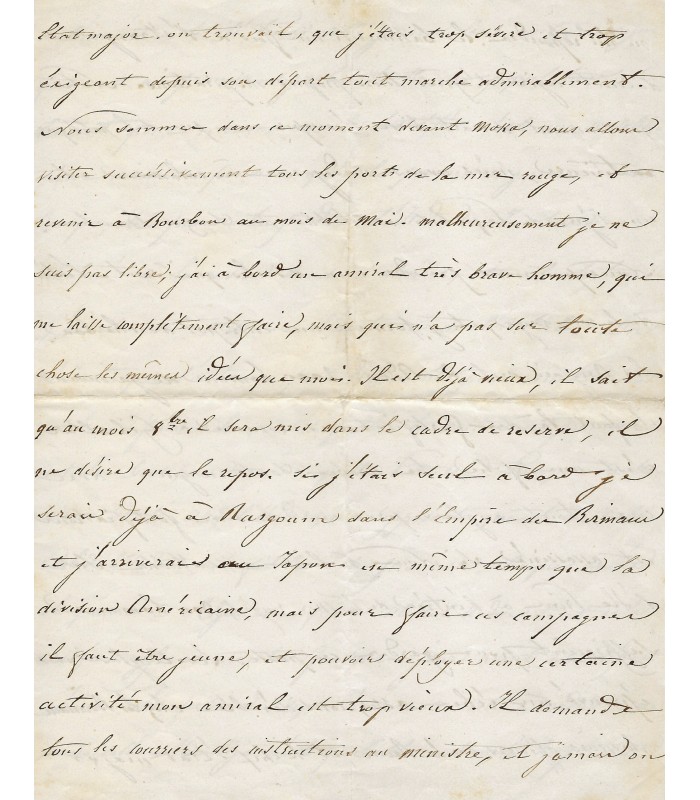 Etat major. on trouvait, que j'étais trop sévère et trop
éxigeant depuis son départ tout marche admirablement.
Nous sommes dans ce moment devant Moka, nous allons
visiter succéssivement tous les ports de la mer rouge, et
revenir à Bourbon au mois de Mai. malheureusement je ne
suis pas libre, j'ai à bord un amiral très brave homme, qui
me laisse complètement faire, mais qui n'a pas sur toute
chose les mêmes idées que moi. Il est déjà vieux, il sait
qu'au mois 8bre il sera mis dans le cadre de reserve, il
ne désire que le repos. Si j'étais seul à bord je
serais déjà à Rangoum dans l'Empire des Birmans
et j'arriverais au Japon en même temps que la
division Américaine, mais pour faire ces campagnes
il faut être jeune, et pouvoir déployer une certaine
activité mon amiral est trop vieux. Il demande
tous les courriers des instructions au ministre, et jamais on